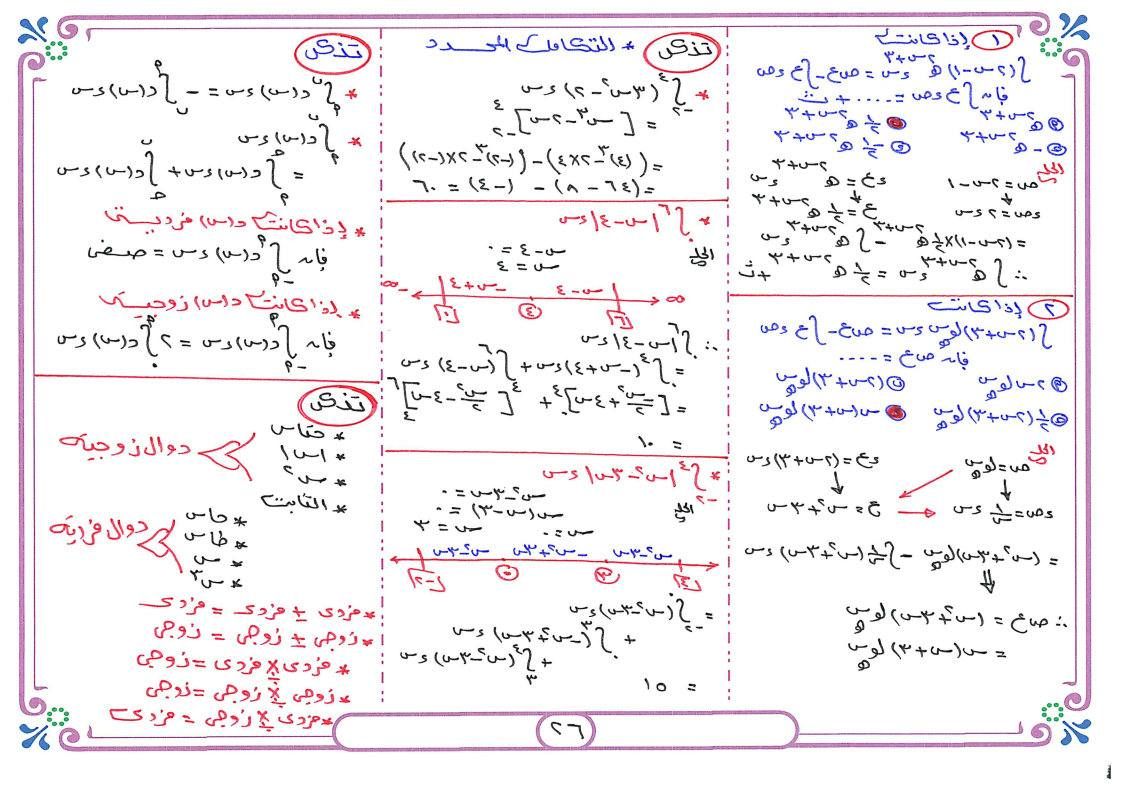 ١ إذا كانت
∫(٢س-١) هـ^(٢س+٣) ءس = ص ع - ∫ع ءص
فإن ∫ع ءص = .... + ث
هـ^(٢س+٣)
١/٢ هـ^(٢س+٣)
-هـ^(٢س+٣)
-١/٢ هـ^(٢س+٣)
الحل
ص = ٢س-١
ءع = هـ^(٢س+٣) ءس
ءص = ٢ءس
ع = ١/٢ هـ^(٢س+٣)
= (٢س-١)×١/٢ هـ^(٢س+٣) - ∫هـ^(٢س+٣) ءس
∴ ∫هـ^(٢س+٣) ءس = ١/٢ هـ^(٢س+٣) + ث
٢ إذا كانت
∫(٢س+٣) لو_هـ س ءس = ص ع - ∫ع ءص
فإن ص ع = ....
٢س لو_هـ س
(٢س+٣) لو_هـ س
١/٢(٢س+٣) لو_هـ س
س(س+٣) لو_هـ س
الحل
ص = لو_هـ س
ءع = (٢س+٣)ءس
ءص = ١/س ءس
ع = س²+٣س
= (س²+٣س) لو_هـ س - ∫١/س (س²+٣س) ءس
∴ ص ع = (س²+٣س) لو_هـ س
= س(س+٣) لو_هـ س
تذكر
* التكامل المحدد
* ∫_{-٢}^{٤} (٣س²-٢) ءس
= [س³-٢س]_{-٢}^{٤}
= ((٤)³-٢×٤) - ((-٢)³-٢×(-٢))
= (٦٤-٨) - (-٤) = ٦٠
* ∫_{٠}^{٦} |س-٤| ءس
الحل
س-٤ = ٠
س = ٤
-∞ -س+٤ س-٤ ∞
[٠] ④ [٦]
∴ ∫_{٠}^{٦} |س-٤| ءس
= ∫_{٠}^{٤} (-س+٤)ءس + ∫_{٤}^{٦} (س-٤)ءس
= [-س²/٢+٤س]_{٠}^{٤} + [س²/٢-٤س]_{٤}^{٦}
= ١٠
* ∫_{-٢}^{٤} |س²-٣س| ءس
الحل
س²-٣س = ٠
س(س-٣) = ٠
س = ٠ س = ٣
س²-٣س -س²+٣س س²-٣س
[-٢] ٠ ③ [٤]
= ∫_{-٢}^{٠} (س²-٣س)ءس
+ ∫_{٠}^{٣} (-س²+٣س)ءس
+ ∫_{٣}^{٤} (س²-٣س)ءس
= ١٥
تذكر
* ∫_{م}^{ب} د(س)ءس = -∫_{ب}^{م} د(س)ءس
* ∫_{م}^{ب} د(س)ءس
= ∫_{م}^{جـ} د(س)ءس + ∫_{جـ}^{ب} د(س)ءس
* إذا كانت د(س) فردية
فإن ∫_{-م}^{م} د(س)ءس = صفر
* إذا كانت د(س) زوجية
فإن ∫_{-م}^{م} د(س)ءس = ٢∫_{٠}^{م} د(س)ءس
تذكر
* حتاس
* |س|
* س٢
* الثابت
دوال زوجية
* حاس
* طاس
* س
* س٣
دوال فردية
* فردى ± فردى = فردى
* زوجى ± زوجى = زوجى
* فردى ×÷ فردى = زوجى
* زوجى ×÷ زوجى = زوجى
* فردى ×÷ زوجى = فردى
٢٦